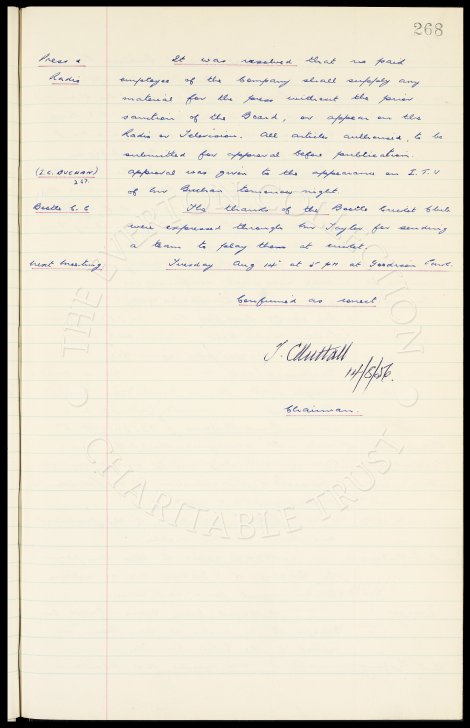 268
Press &
Radio
It was resolved that no paid
employee of the Company shall supply any
material for the press without the prior
sanction of the Board, or appear on the
Radio or Television. All articles authorised, to be
submitted for approval before publication.
(I.C. BUCHAN)
267.
approval was given to the appearance on I.T.V
of Mr Buchan tomorrow night.
Bootle C.C
The thanks of the Bootle Cricket Club
were expressed through Mr Taylor for sending
a team to play them at cricket.
Next Meeting
Tuesday Aug 14th at 5 pm at Goodison Park.
Confirmed as correct
T. C. Nuttall
14/8/56.
Chairman.
THE EVERTON COLLECTION
CHARITABLE TRUST